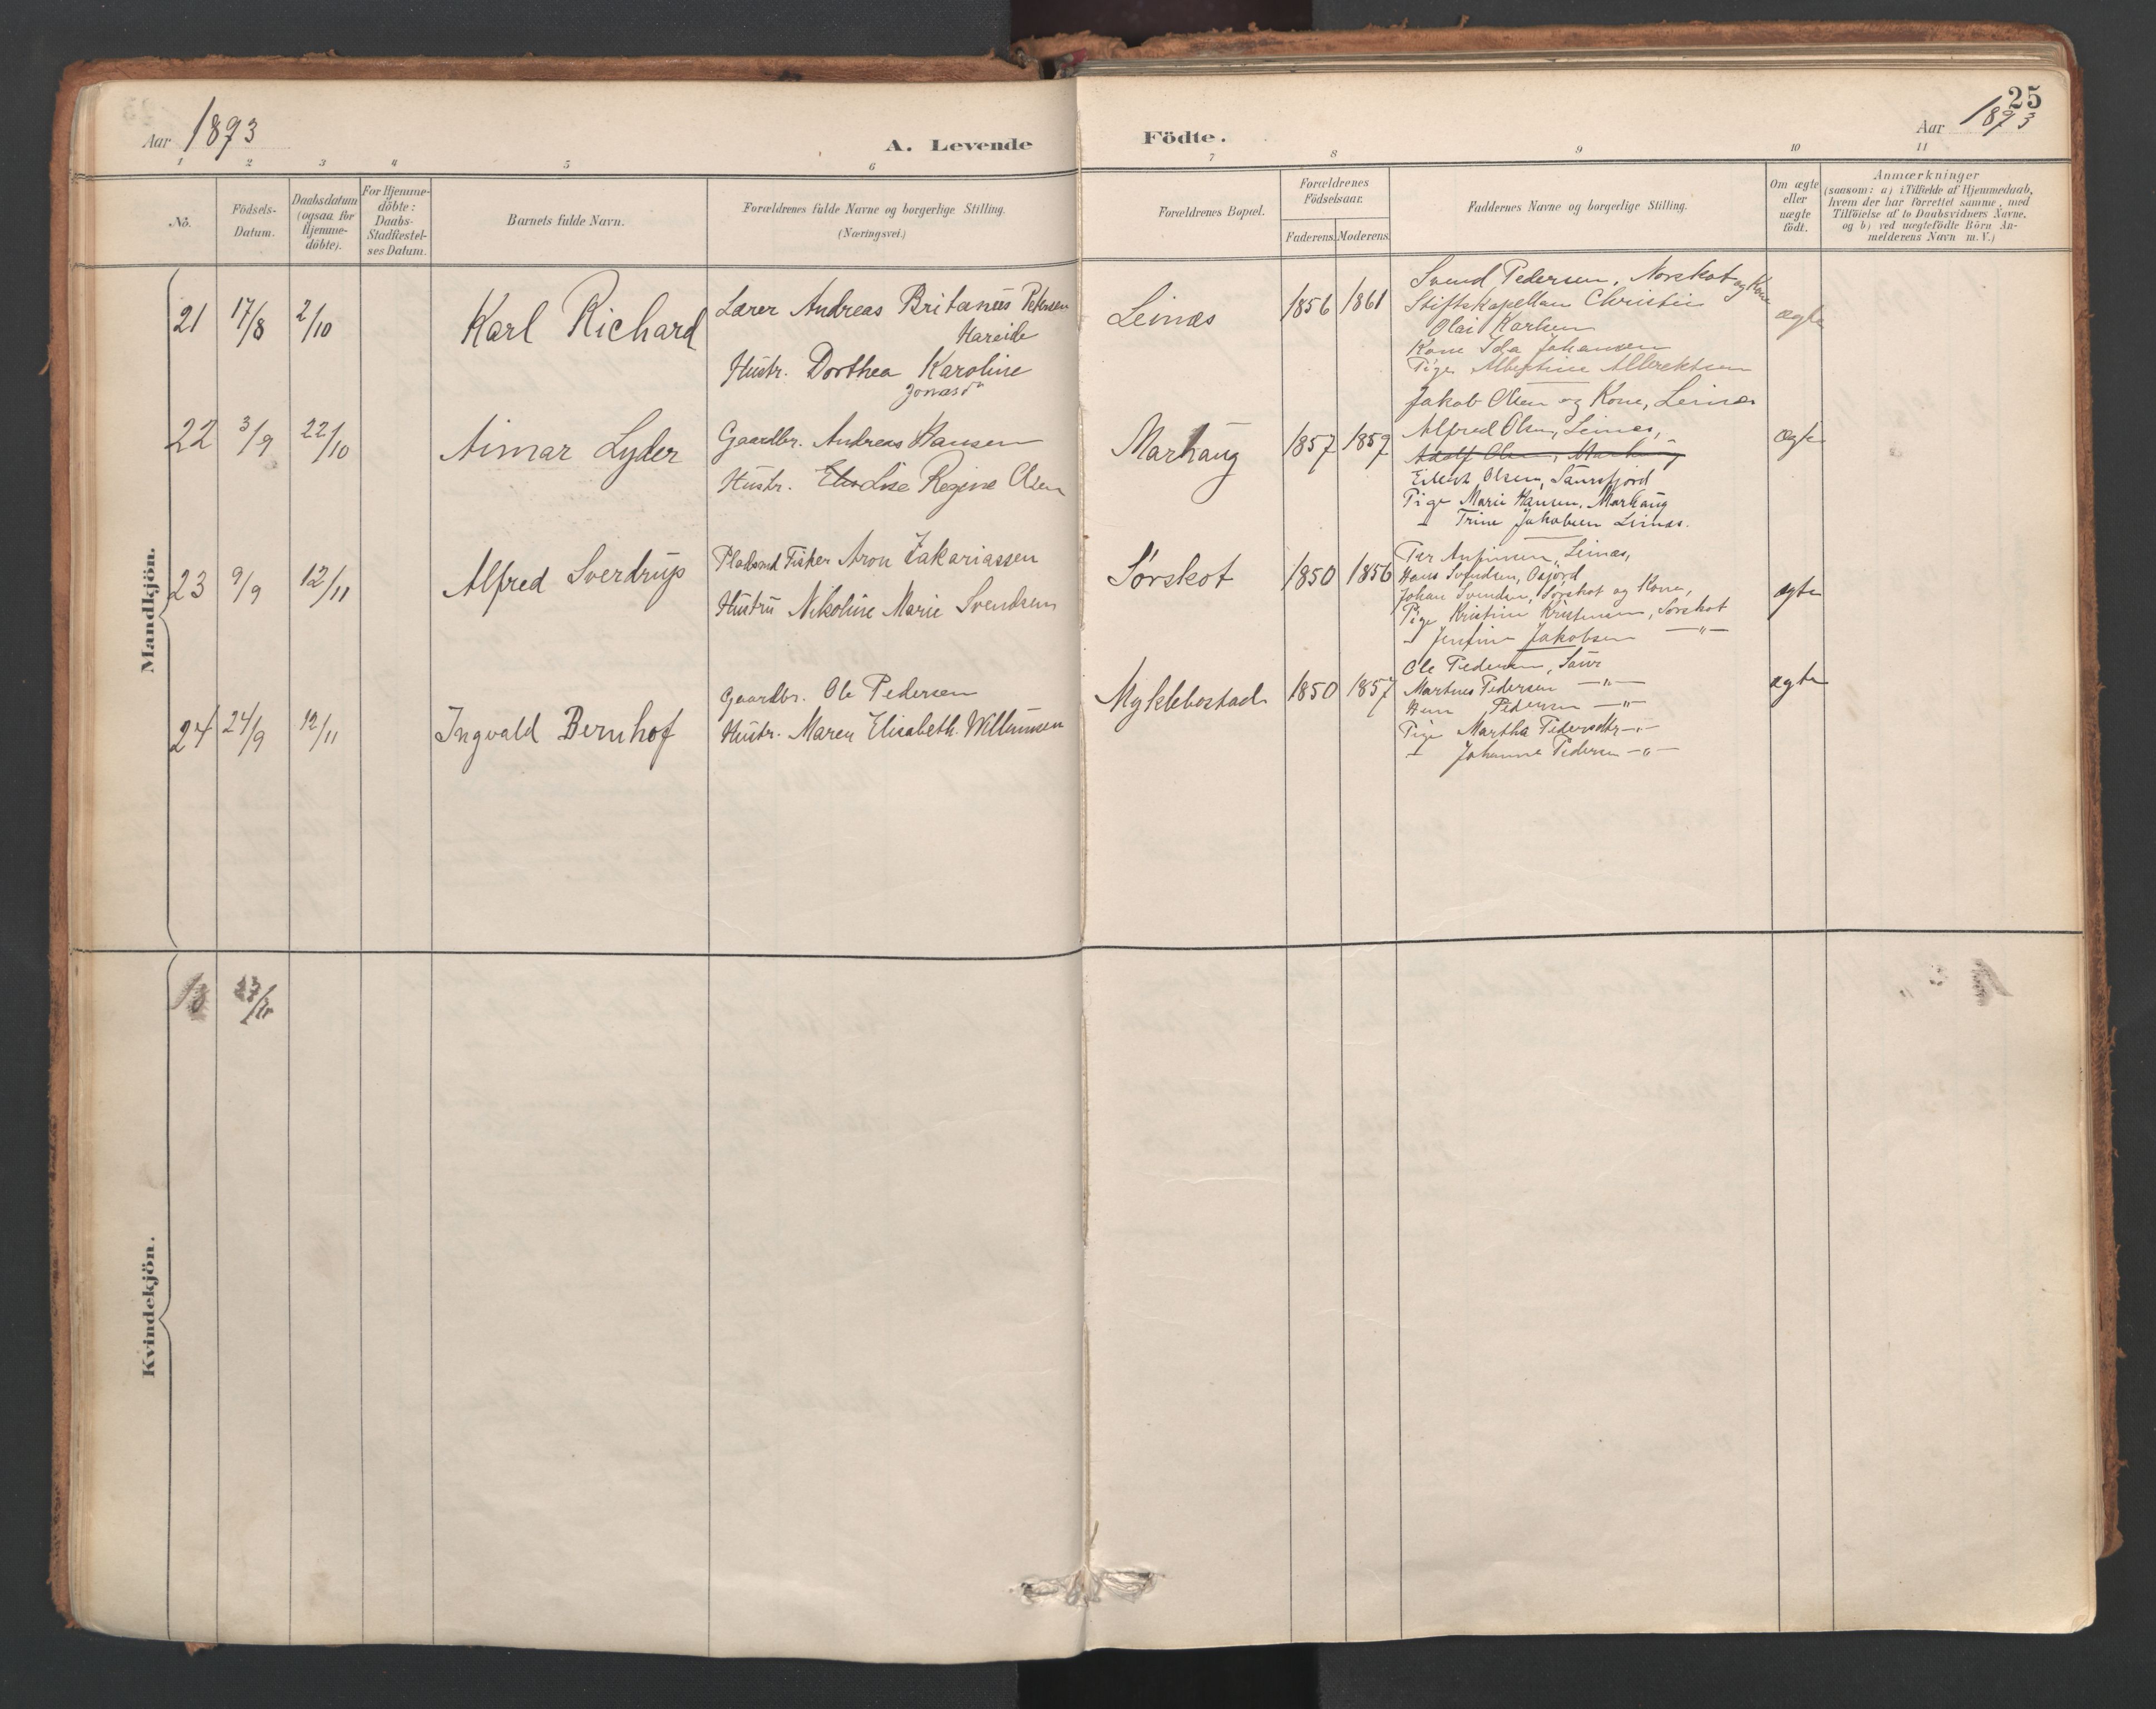 25
Aar 1893
A. Levende
Födte.
Aar 1893
1 2 3 4 5 6 7 8 9 10 11
No.
Födsels-
Datum.
Daabsdatum
(ogsaa for
Hjemme-
döbte).
For Hjemme-
döbte:
Daabs-
Stadfæstel-
ses Datum.
Barnets fulde Navn.
Forældrenes fulde Navne og borgerlige Stilling.
(Næringsvei.)
Forældrenes Bopæl.
Forældrenes
Födselsaar.
Faderens. Moderens.
Faddernes Navne og borgerlige Stilling.
Om ægte
eller
uægte
födt.
Anmærkninger
(saasom: a) i Tilfælde af Hjemmedaab,
hvem der har forrettet samme, med
Tilföielse af to Daabsvidners Navne.
og b) ved uægtefödte Börn An-
melderens Navn m. V.)
Mandkjön.
21 17/8 2/10 Karl Richard
Lærer Andreas Britanus Petersen
Hareide
Hustr. Dorthea Karoline
Jonasdr
Leinæs 1856 1861
Svend Pedersen, Norskot og Kone
Stiftskapellan Christie
Olai Karlsen
Kone Ida Johansen
Pige Albertine Albrektsen
ægte
22 3/9 22/10 Aimar Lyder
Gaardbr. Andreas Hansen
Hustr. Lise Regine Olsen
Marhaug 1857 1859
Jakob Olsen og Kone, Leinæs
Alfred Olsen, Leinæs,
Adolf Olsen, Marhaug
Eilert Olsen, Saursfjord
Pige Marie Hansen, Marhaug
" Trine Jakobsen Leinæs.
ægte
23 9/9 12/11 Alfred Sverdrup
Pladsmd Fisker Aron Zakariassen
Hustru Nikoline Marie Svendsen
Sørskot 1850 1856
Per Anfinsen, Leinæs,
Hans Svendsen, Osjord
Johan Svendsen, Sørskot og Kone,
Pige Kristine Kristensen, Sørskot
" Jensine Jakobsen —"—
ægte
24 24/9 12/11 Ingvald Bernhof
Gaardbr. Ole Pedersen
Hustr. Maren Elisabeth Willumsen
Myklebostad 1850 1857
Ole Pedersen, Saur
Martines Pedersen —"—
Pedersen —"—
Pige Martha Pedersdtr —"—
" Johanna Pedersen —"—
ægte
Kvindekjön.